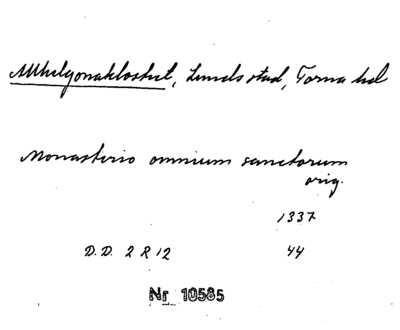 Allhelgonaklostret, Lunds stad, Torna hd
Monasterio omnium sanctorum
orig.
1337
D.D. 2 R 12 44
Nr 10585